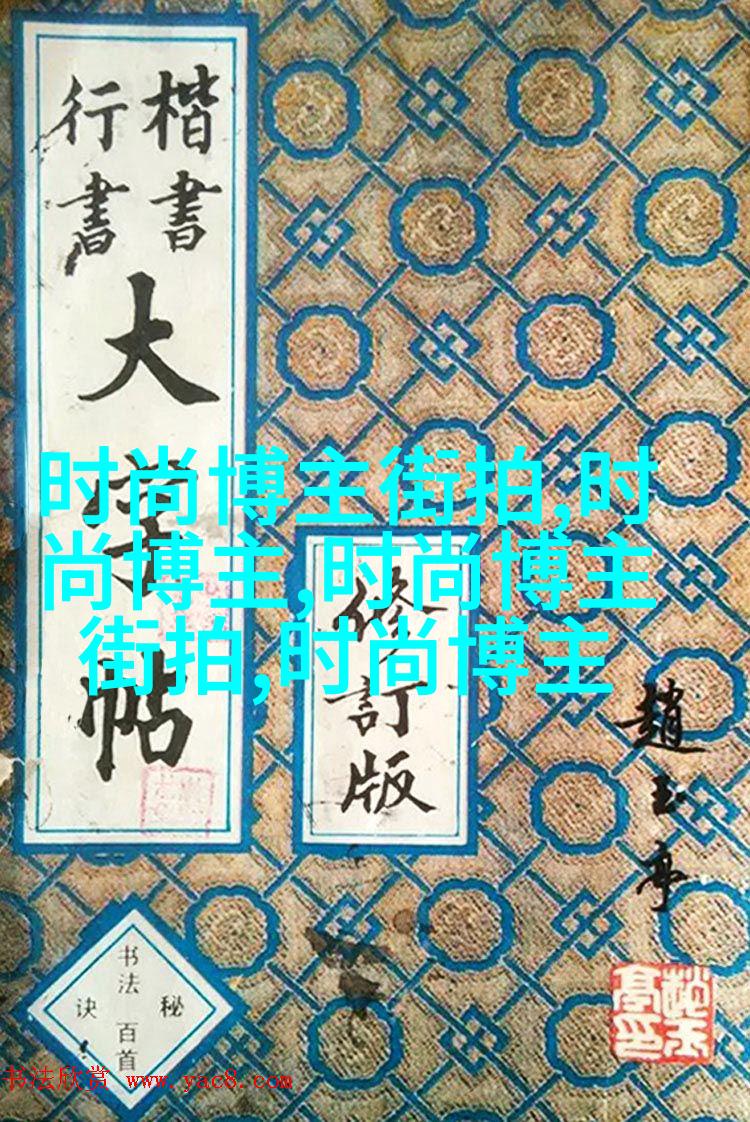 楷書
行書
大字帖
修訂版
趙玉亭
书法百首
秘诀
时尚博主街拍,时
尚博主,时尚博主
街拍,时尚博主
书法欣赏 www.yac8.com